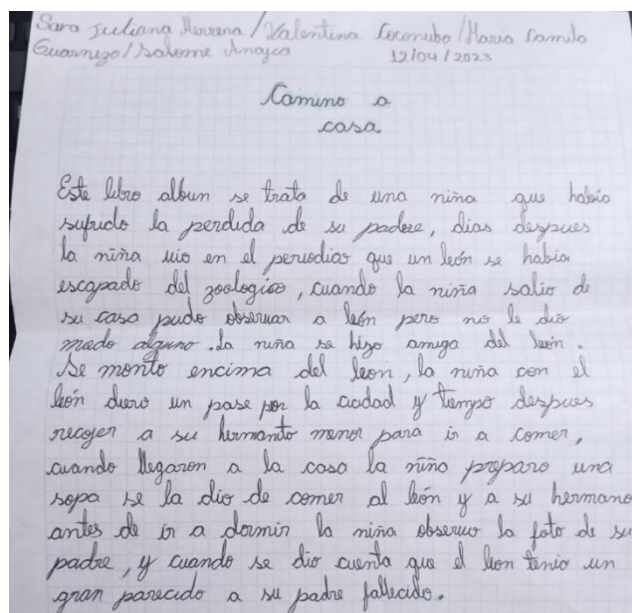 Sara Juliana Herrera / Valentina Coconubo / Maria Camila
Guarnizo / Salome Anayco
12/04/2023
Camino a
casa.
Este libro album se trata de una niña que habia
sufrido la perdida de su padre, dias despues
la niña vio en el periodico que un león se habia
escapado del zoologico, cuando la niña salio de
su casa pudo observar a león pero no le dio
miedo alguno. La niña se hizo amiga del leon.
Se monto encima del leon, la niña con el
león diero un pase por la ciudad y tiempo despues
recojer a su hermanito menor para ir a comer,
cuando llegaron a la casa la niña preparo una
sopa se la dio de comer al león y a su hermano
antes de ir a dormir la niña observo la foto de su
padre, y cuando se dio cuenta que el leon tenio un
gran parecido a su padre fallecido.